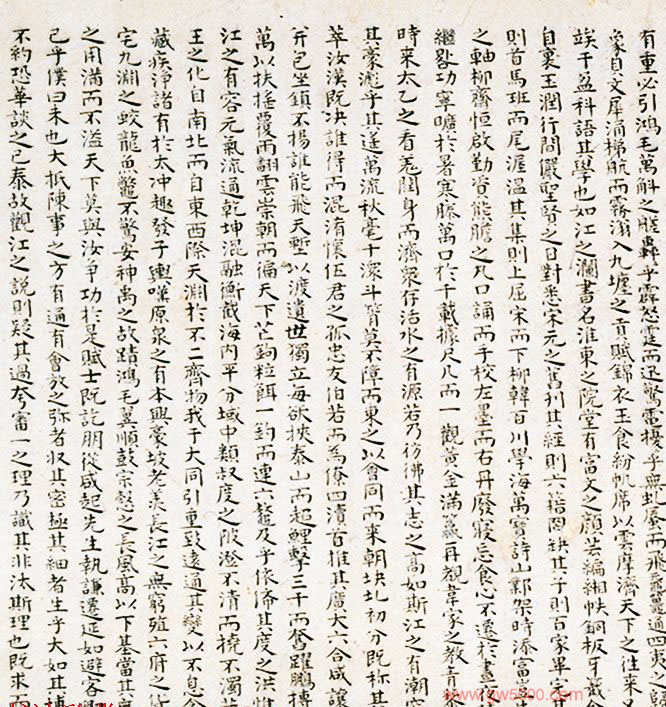 有重必引鴻毛萬斛之艖轟乎霹怒霆而迅驚雷擾乎無虬屬而飛通四夷之
象自文犀涌梯航而霧溯入九壥之貢賦錦衣玉食紛帆席以雲摩濟天下之往来
竢于盈科語其學也如江之瀾書名淮東之院堂有富文之顏芸編緗帙銅板牙籤
自裏玉潤行間儼聖賢之日對悉宋元之舊刊其經則六籍罔缺其子則百家畢
則首馬班而尾涯温其集則上屈宋而下柳韓百川學海萬寶詩山鄴架時添富
之軸柳齋恒啟勤咨熊膽之丸口誦而手校左墨而右丹廢寢忘食心不遷於畫
繼晷功寧曠於暑寒勝萬口於千載據尺几而一觀黃金滿籯再覩韋家之教青
時来太乙之看爰閏身而濟衆仔活水之有源若乃彷彿其志之高如斯江之有潮
其豪乎其逕萬流秋毫十斗筲莫不障而東之以會同而来朝坱圠初分既称其
萃汝漢既决誰得而混淆懐伍君之孤忠友伯若而為僚四瀆首推其廣大六合咸讓
并包坐鎮不揚誰能飛天塹以渡遺世獨立每欲挾泰山而超鯉擊三千而奮躍鵬搏
萬以扶摇覆雨翻雲崇朝而徧天下芒鉤粒餌一釣而連六鰲及乎依俙其度之洪惟
江之有容元氣流通乾坤混融衡截海内平分域中類叔度之陂澄不清而撓不濁
王之化自南北而自東西際天淵於不二齊物我于大同引重致遠通其變以不息
藏疾浄諸有於太冲趣發于輿嘆原泉之有本興豪坡老羡長江之無窮殖六府之
宅九淵之蛟龍魚鼈不驚安神禹之故蹟鴻毛翼順鼓宗慤之長風高以下基當其
之用滿而不溢天下莫與汝争功於是賦士既訖朋從咸起先生執謙遷延如避客
已乎僕曰未也大抵陳事之方有通有會放之弥者収其密極其細者生乎大如其
不約恐華談之已泰故觀江之説則疑其過夸審一之理乃識其非汰斯理也既求
www.gw5800.com